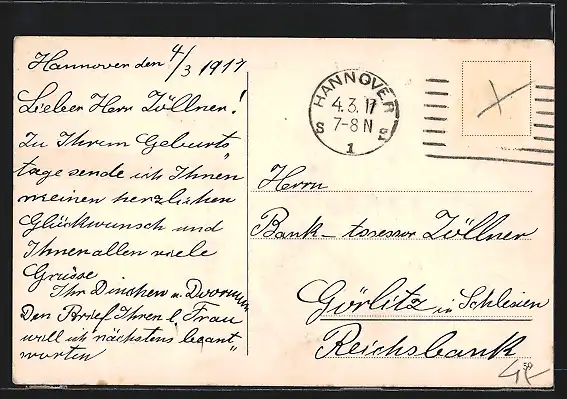 Hannover den 4/3 1917
Lieber Herr Zöllner!
Zu Ihrem Geburts„
tage sende ich Ihnen
meinen herzlichen
Glückwunsch und
Ihnen allen viele
Grüsse
Ihr Dinchen u.
Den Brief Ihrer l. Frau
will ich nächstens beant„
worten
HANNOVER
4.3.17
7-8 N
S S
1
Herrn
Bank-Assessor Zöllner
Görlitz in Schlesien
Reichsbank